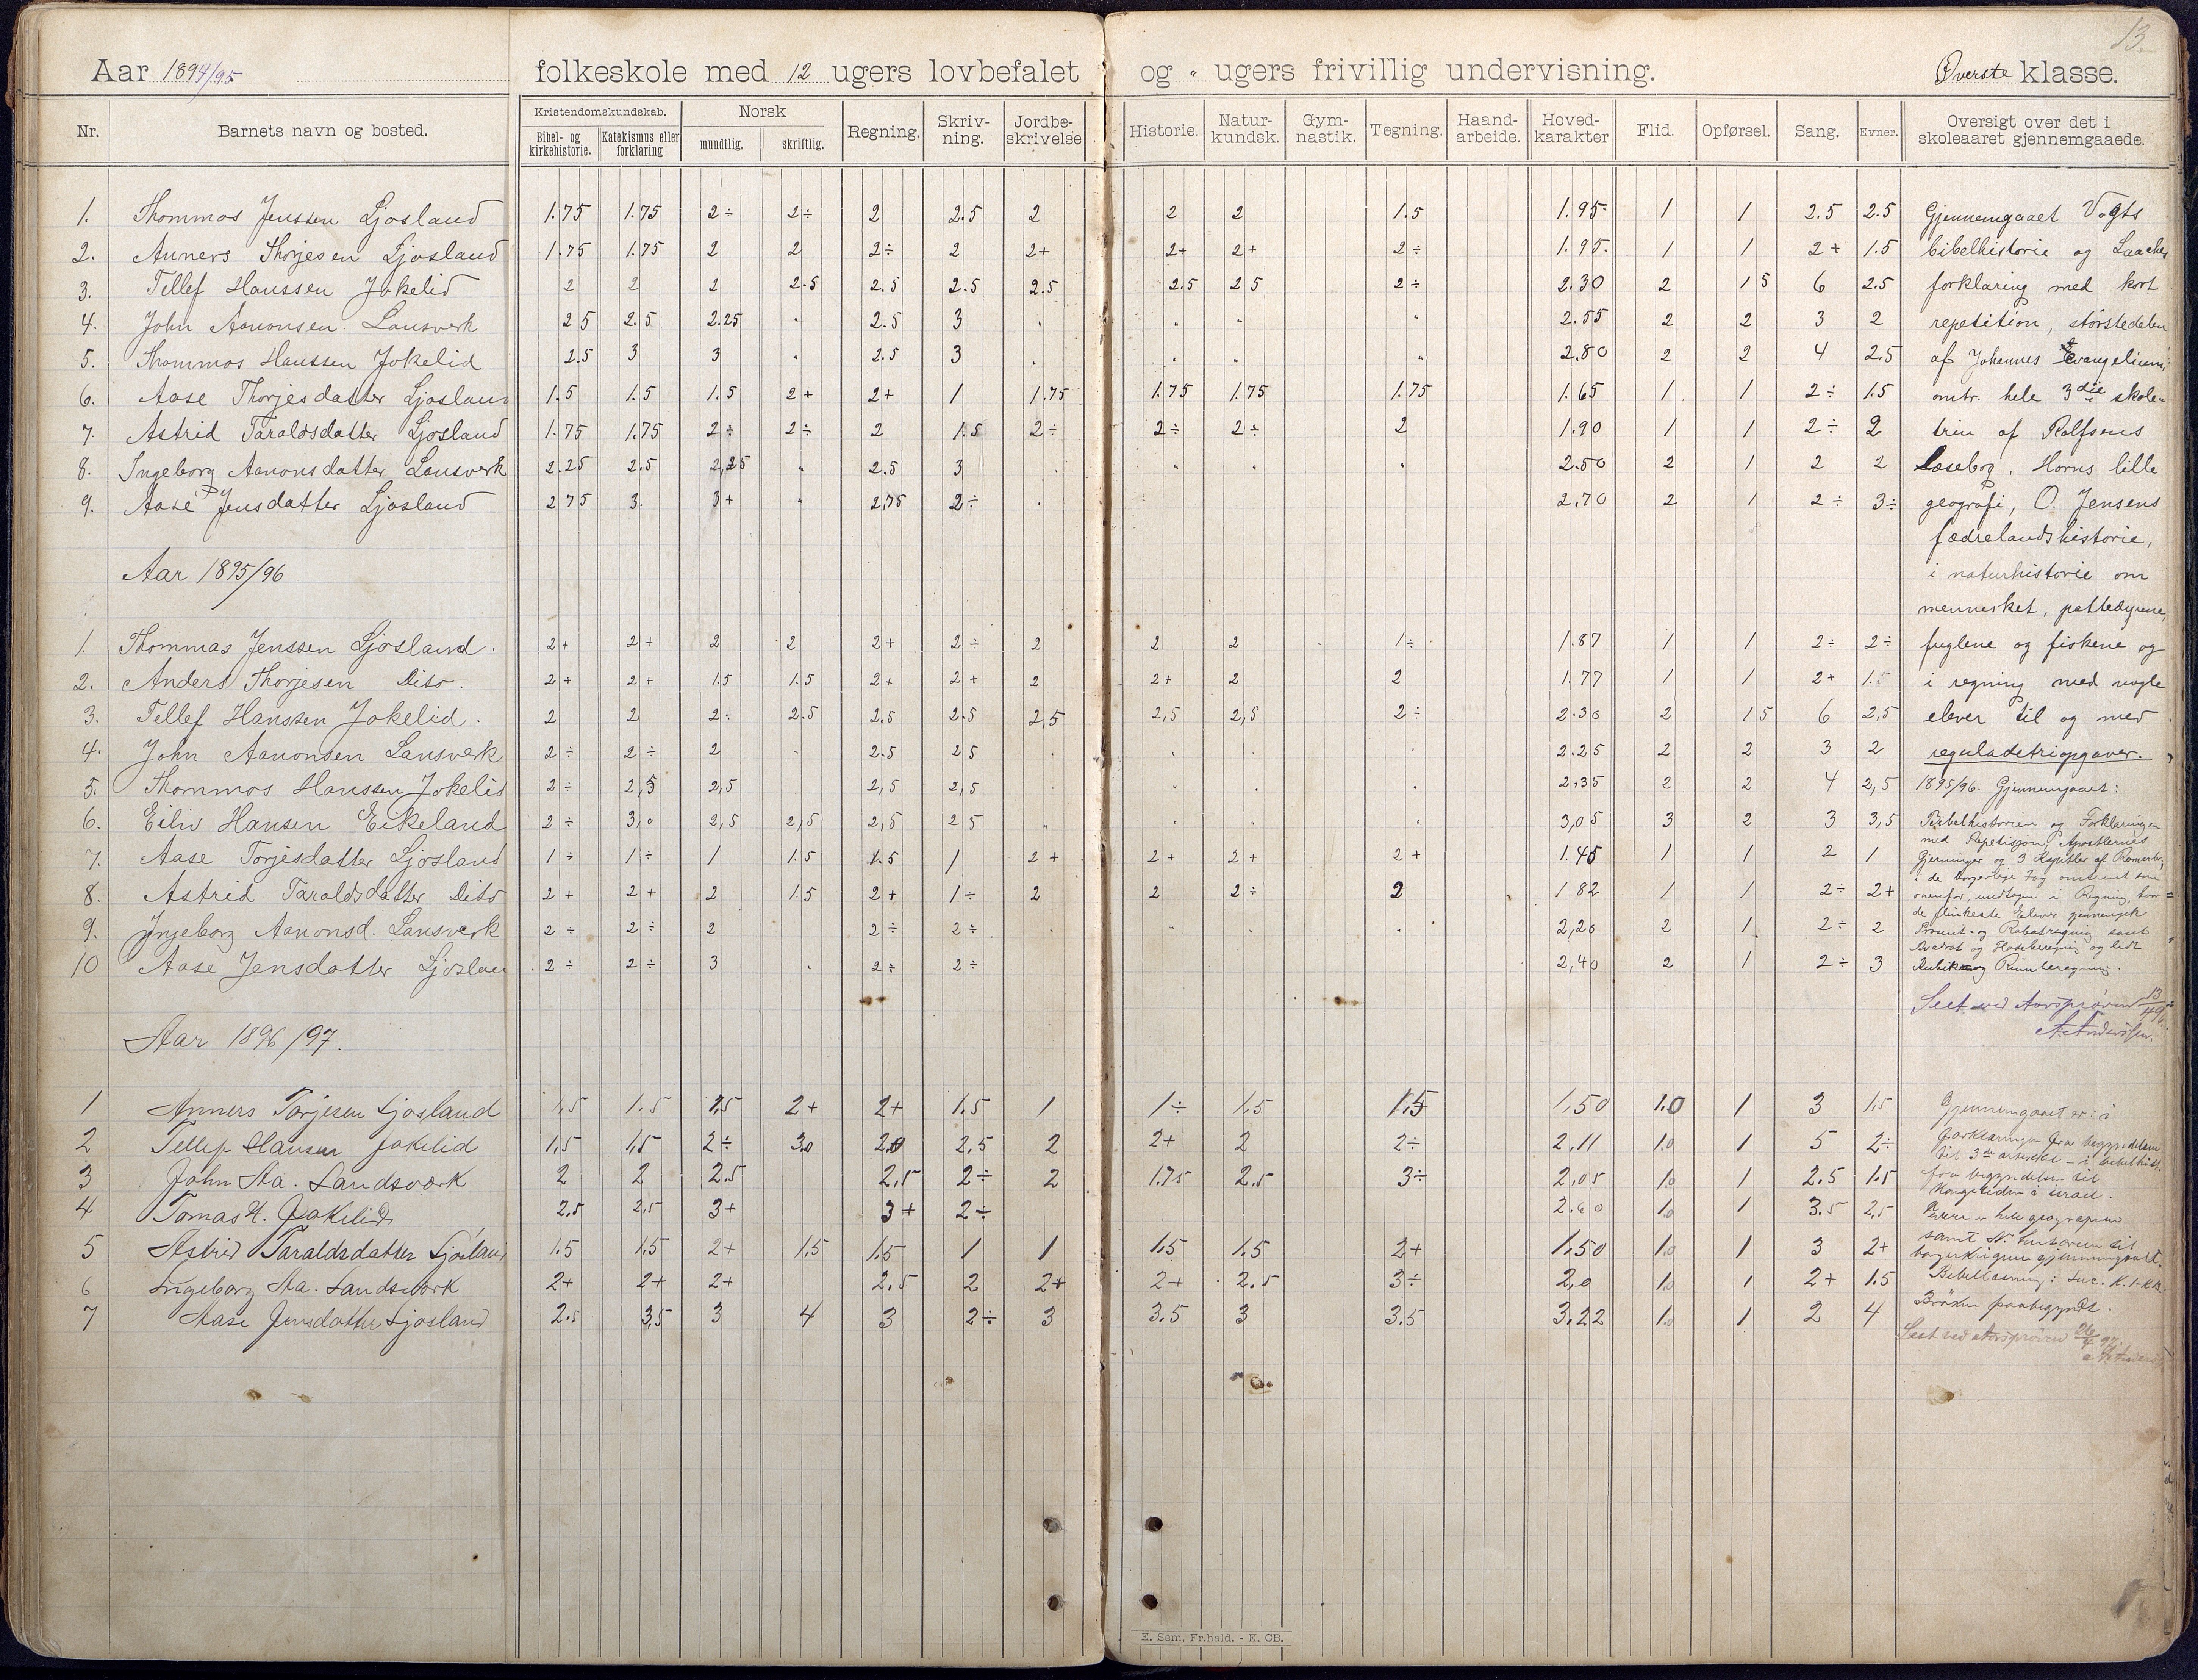 13.
Aar 1894/95 folkeskole med 12 ugers lovbefalet og " ugers frivillig undervisning. Øverste klasse.
Nr. Barnets navn og bosted. Kristendomskundskab. Bibel- og kirkehistorie. Katekismus eller forklaring Norsk mundtlig. skriftlig. Regning. Skriv-ning. Jordbe-skrivelse Historie. Natur-kundsk. Gym-nastik. Tegning. Haand-arbeide. Hoved-karakter Flid. Opførsel. Sang. Evner. Oversigt over det i skoleaaret gjennemgaaede.
1. Thommas Jenssen Ljosland 1.75 1.75 2÷ 2÷ 2 2.5 2 2 2 1.5 1.95 1 1 2.5 2.5 Gjennemgaaet Vogts
2. Anners Thorjesen Ljosland 1.75 1.75 2 2 2÷ 2 2+ 2+ 2+ 2÷ 1.95. 1 1 2+ 1.5 bibelhistorie og
3. Tellef Hanssen Jokelid 2 2 2 2.5 2.5 2.5 2.5 2.5 25 2÷ 2.30 2 15 6 2.5 forklaring med kort
4. John Aanonsen Lansverk 25 2.5 2.25 " 2.5 3 . " " " 2.55 2 2 3 2 repetition, störstedelen
5. Thommas Hanssen Jokelid 2.5 3 3 " 2.5 3 . " " " 2.80 2 2 4 2.5 af Johannes Evangelium,
6. Aase Thorjesdatter Ljosland 1.5 1.5 1.5 2+ 2+ 1 1.75 1.75 1.75 1.75 1.65 1 1 2÷ 1.5 omtr. hele 3die skole-
7. Astrid Taraldsdatter Ljosland 1.75 1.75 2÷ 2÷ 2 1.5 2÷ 2÷ 2÷ 2 1.90 1 1 2÷ 2 trin af Rolfsens
8. Ingeborg Aanonsdatter Lansverk 2.25 2.5 2,25 " 2.5 3 . " " " 2.50 2 1 2 2 Læsebog, Horns lille
9. Aase Jensdatter Ljosland 275 3. 3+ " 2,75 2÷ . 2.70 2 1 2÷ 3÷ geografi, O. Jensens
fædrelandshistorie,
Aar 1895/96 i naturhistorie om
mennesket, pattedyrene,
1. Thommas Jenssen Ljosland. 2+ 2+ 2 2 2+ 2÷ 2 2 2 1÷ 1.87 1 1 2÷ 2÷ fuglene og fiskene og
2. Anders Thorjesen Dito. 2+ 2+ 1.5 1.5 2+ 2+ 2 2+ 2 2 1.77 1 1 2+ 1.5 i regning med nogle
3. Tellef Hanssen Jokelid. 2 2 2÷ 2.5 2,5 2.5 2,5 2,5 2,5 2÷ 2.30 2 15 6 2,5 elever til og med
4. John Aanonsen Lansverk 2÷ 2÷ 2 . 2.5 25 . . . . 2.25 2 2 3 2 reguladetriopgaver.
5. Thommas Hanssen Jokelid 2÷ 2,5 2,5 2,5 2,5 . . . . 2.35 2 2 4 2,5 1895/96. Gjennemgaaet:
6. Eiliv Hansen Eikeland 2÷ 3,0 2,5 2,5 2,5 25 . . . . 3,05 3 2 3 3,5 Bibelhistorien og Forklaringen
med Repetisjon, Apostlernes
7. Aase Torjesdatter Ljosland 1÷ 1÷ 1 1.5 1.5 1 2+ 2+ 2+ 2+ 1.45 1 1 2 1 Gjerninger og 3 Kapitler af Romerbr,
i de borgerlige Fag omtrent som
8. Astrid Taraldsdatter Dito 2+ 2+ 2 1.5 2+ 1÷ 2 2 2÷ 2 182 1 1 2÷ 2+ ovenfor, undtagen i Regning, hvor
de flinkeste Elever gjennemgik
9. Ingeborg Aanonsd. Lansverk 2÷ 2÷ 2 2÷ 2÷ . . . . 2,20 2 1 2÷ 2 Procent- og Rabatregning samt
Kvadrat og Fladeberegning og lidt
10 Aase Jensdatter Ljoslan 2÷ 2÷ 3 . 2÷ 2÷ 2,40 2 1 2÷ 3 Kubik og Rumberegning.
Seet ved Aarsprøven 13/4 96.
A. Anderssen.
Aar 1896/97.
1 Anners Torjesen Ljosland 1,5 1.5 1,5 2+ 2+ 1.5 1 1÷ 1,5 1.5 1,50 1.0 1 3 1,5 Gjennemgaaet er: i
2 Tellef Hansen Jokelid 1,5 1,5 2÷ 3.0 2,0 2,5 2 2+ 2 2÷ 2,11 1.0 1 5 2÷ forklaringen fra begyndelsen
til 3de artikel - i bibelhist.
3 John Aa. Landsværk 2 2 2.5 2,5 2÷ 2 1.75 2.5 3÷ 2,05 1.0 1 2.5 1.5 fra begyndelsen til
Kongetiden i Israel.
4 Tomas H. Jokelid 2.5 2,5 3+ 3+ 2÷ 2.60 1.0 1 3.5 2,5 hele geografien
5 Astrid Taraldsdatter Ljosland 1.5 1,5 2+ 1,5 1.5 1 1 1.5 1.5 2+ 1,50 1.0 1 3 2+ samt N. historien til
borgerkrigene gjennemgaaet.
6 Ingeborg Aa. Landsværk 2+ 2+ 2+ 2.5 2 2+ 2+ 2.5 3÷ 2,0 1.0 1 2+ 1.5 Bibellæsning: Luc. K.1-K
7 Aase Jensdatter Ljosland 2.5 3,5 3 4 3 2÷ 3 3.5 3 3.5 3,22 1.0 1 2 4 Brøken paabegyndt.
Seet ved Aarsprøven 26/4 97.
E. Sem, Fr.hald. - E. CB.